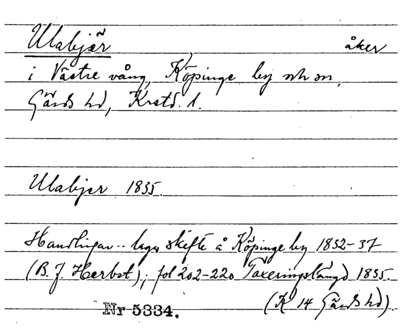 Ulabjär åker
i Västre vång, Köpinge by och sn,
Gärds hd, Krstd. l.
Ulabjer 1855.
Handlingar .. laga skifte å Köpinge by 1852-37
(B. J. Herbst); fol 202-220 Taxeringslängd 1835.
(K 14 Gärds hd).
Nr 5334.